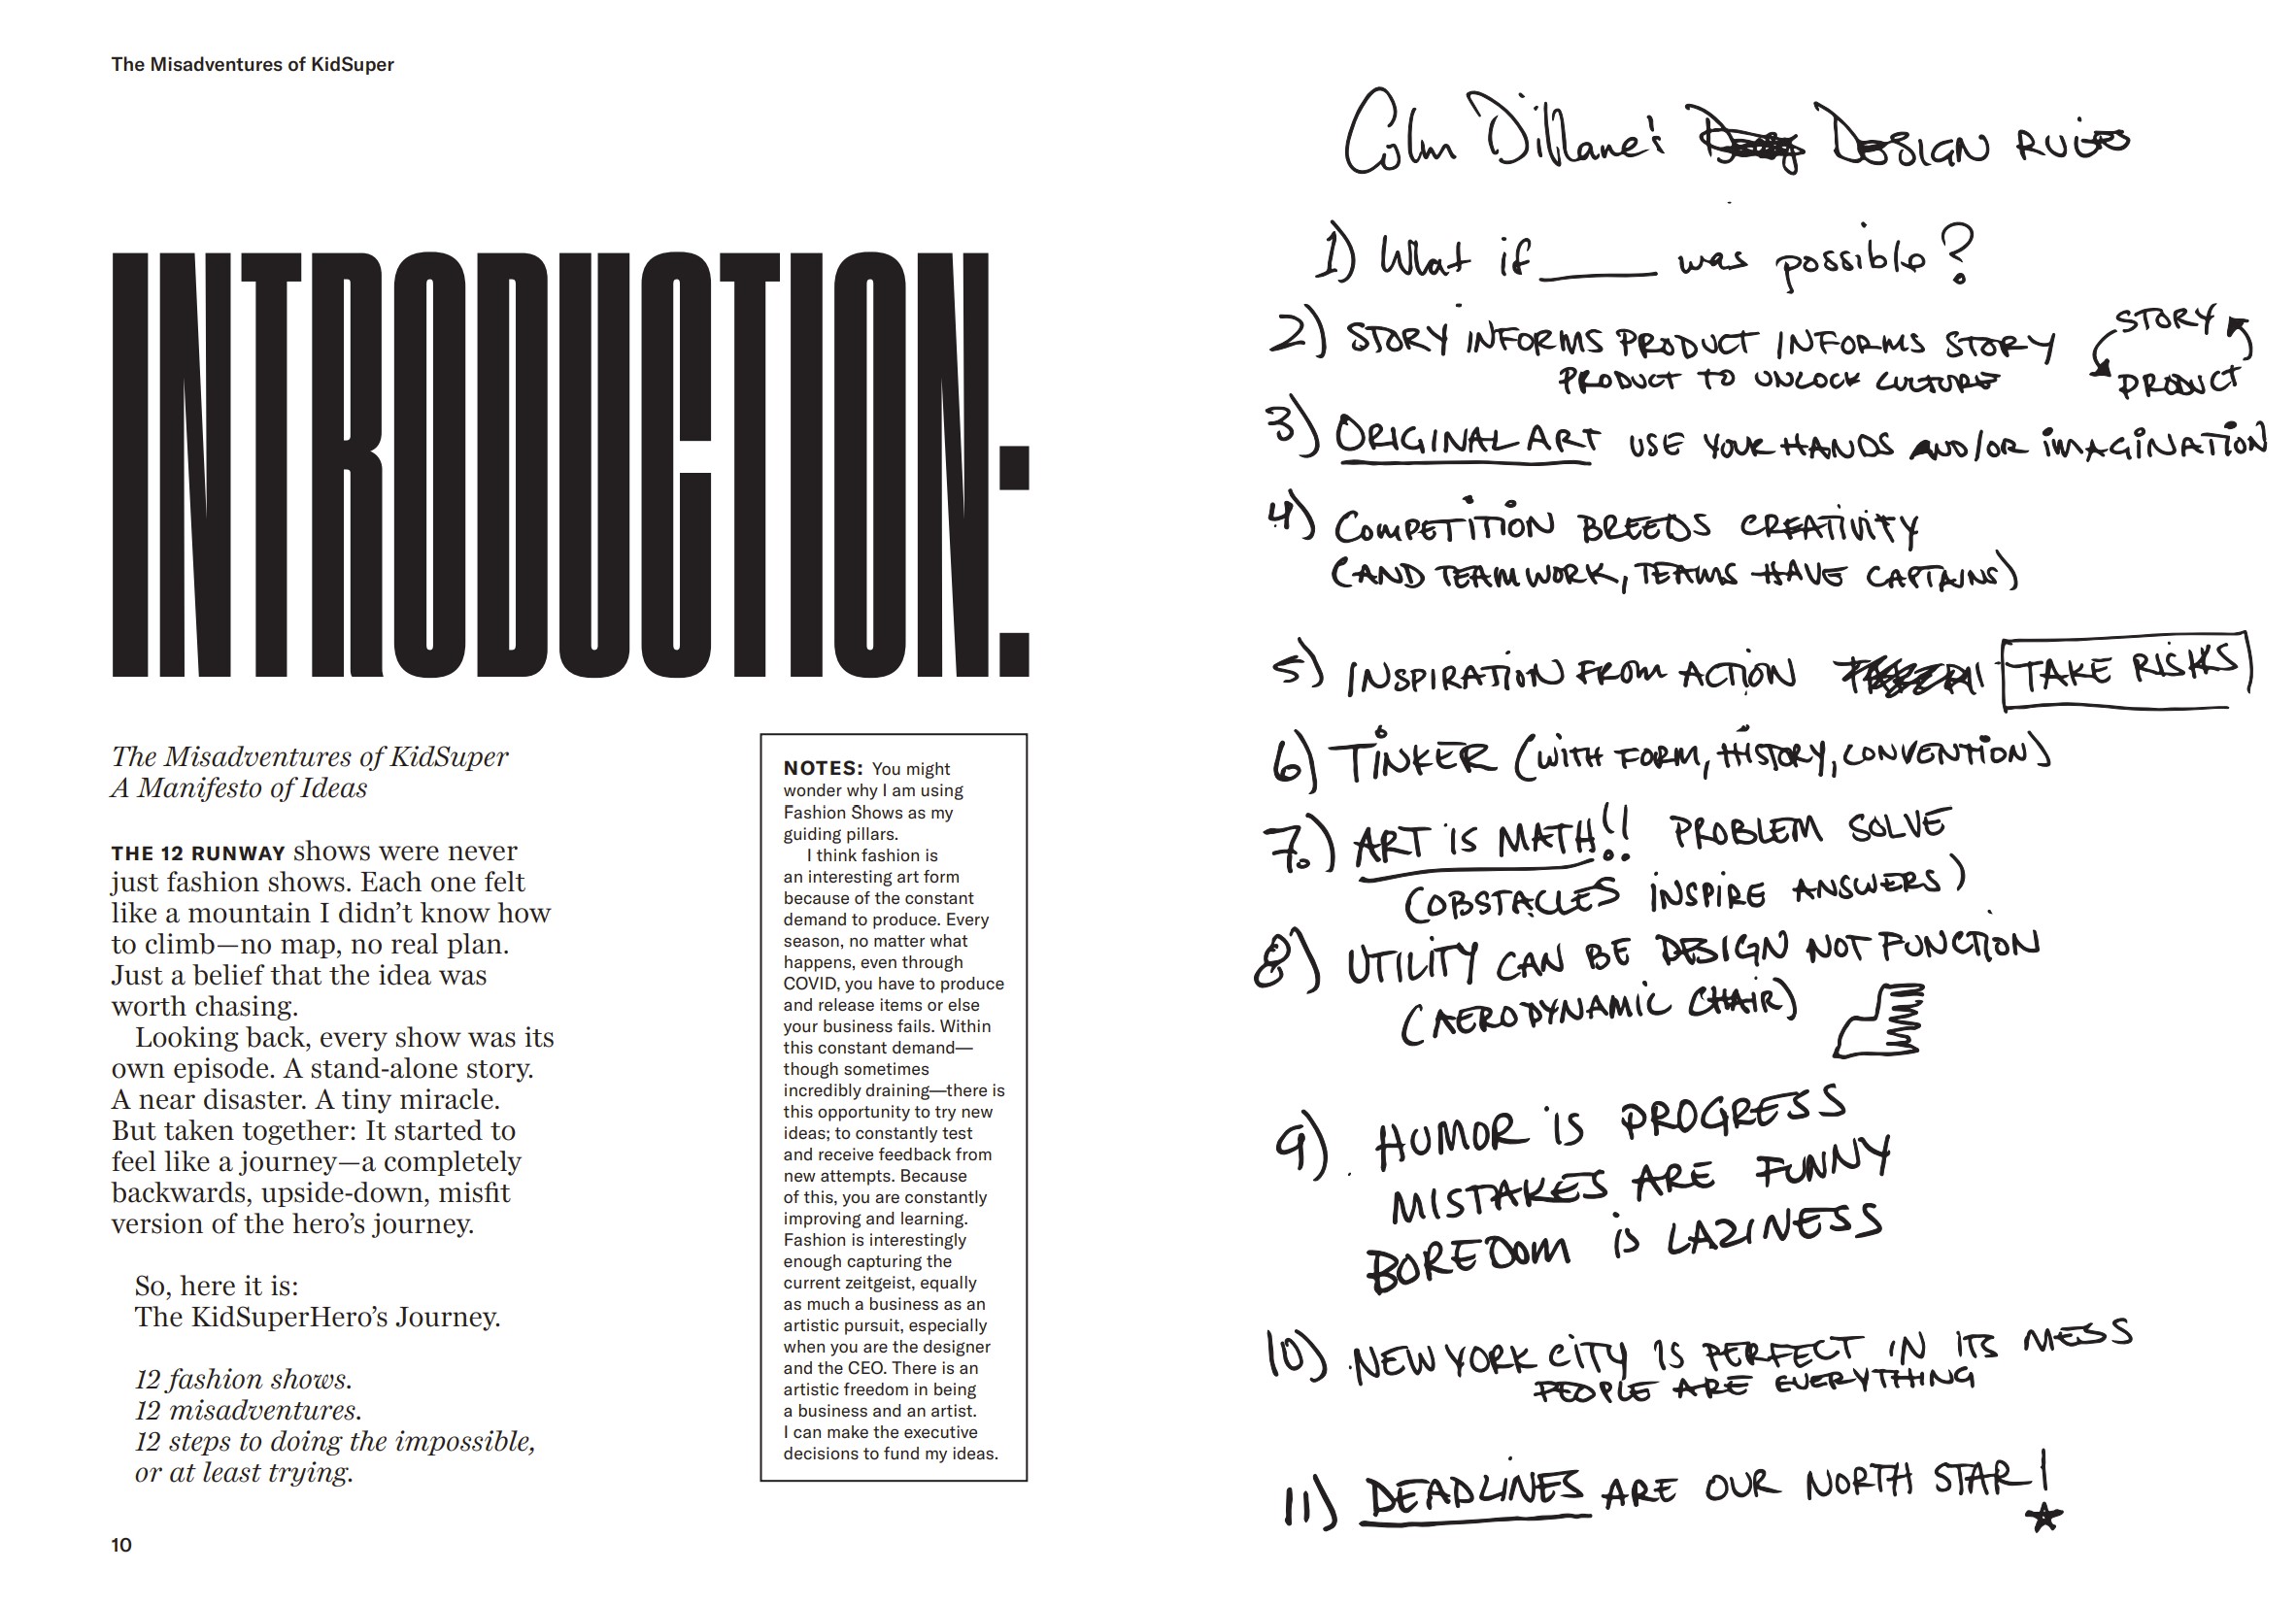 The Misadventures of KidSuper
INTRODUCTION:
The Misadventures of KidSuper
A Manifesto of Ideas
THE 12 RUNWAY shows were never
just fashion shows. Each one felt
like a mountain I didn’t know how
to climb—no map, no real plan.
Just a belief that the idea was
worth chasing.
Looking back, every show was its
own episode. A stand-alone story.
A near disaster. A tiny miracle.
But taken together: It started to
feel like a journey—a completely
backwards, upside-down, misfit
version of the hero’s journey.
So, here it is:
The KidSuperHero’s Journey.
12 fashion shows.
12 misadventures.
12 steps to doing the impossible,
or at least trying.
NOTES: You might
wonder why I am using
Fashion Shows as my
guiding pillars.
I think fashion is
an interesting art form
because of the constant
demand to produce. Every
season, no matter what
happens, even through
COVID, you have to produce
and release items or else
your business fails. Within
this constant demand—
though sometimes
incredibly draining—there is
this opportunity to try new
ideas; to constantly test
and receive feedback from
new attempts. Because
of this, you are constantly
improving and learning.
Fashion is interestingly
enough capturing the
current zeitgeist, equally
as much a business as an
artistic pursuit, especially
when you are the designer
and the CEO. There is an
artistic freedom in being
a business and an artist.
I can make the executive
decisions to fund my ideas.
10
Colm Dillane's DESIGN RULES
1) What if ____ was possible?
2) STORY INFORMS PRODUCT INFORMS STORY
PRODUCT TO UNLOCK CULTURE
STORY
PRODUCT
3) ORIGINAL ART USE YOUR HANDS AND/OR IMAGINATION
4) COMPETITION BREEDS CREATIVITY
(AND TEAMWORK, TEAMS HAVE CAPTAINS)
5) INSPIRATION FROM ACTION TAKE RISKS
6) TINKER (WITH FORM, HISTORY, CONVENTION)
7.) ART IS MATH!! PROBLEM SOLVE
(OBSTACLES INSPIRE ANSWERS)
8) UTILITY CAN BE DESIGN NOT FUNCTION
(AERODYNAMIC CHAIR)
9). HUMOR IS PROGRESS
MISTAKES ARE FUNNY
BOREDOM IS LAZINESS
10) NEW YORK CITY IS PERFECT IN ITS MESS
PEOPLE ARE EVERYTHING
11) DEADLINES ARE OUR NORTH STAR!